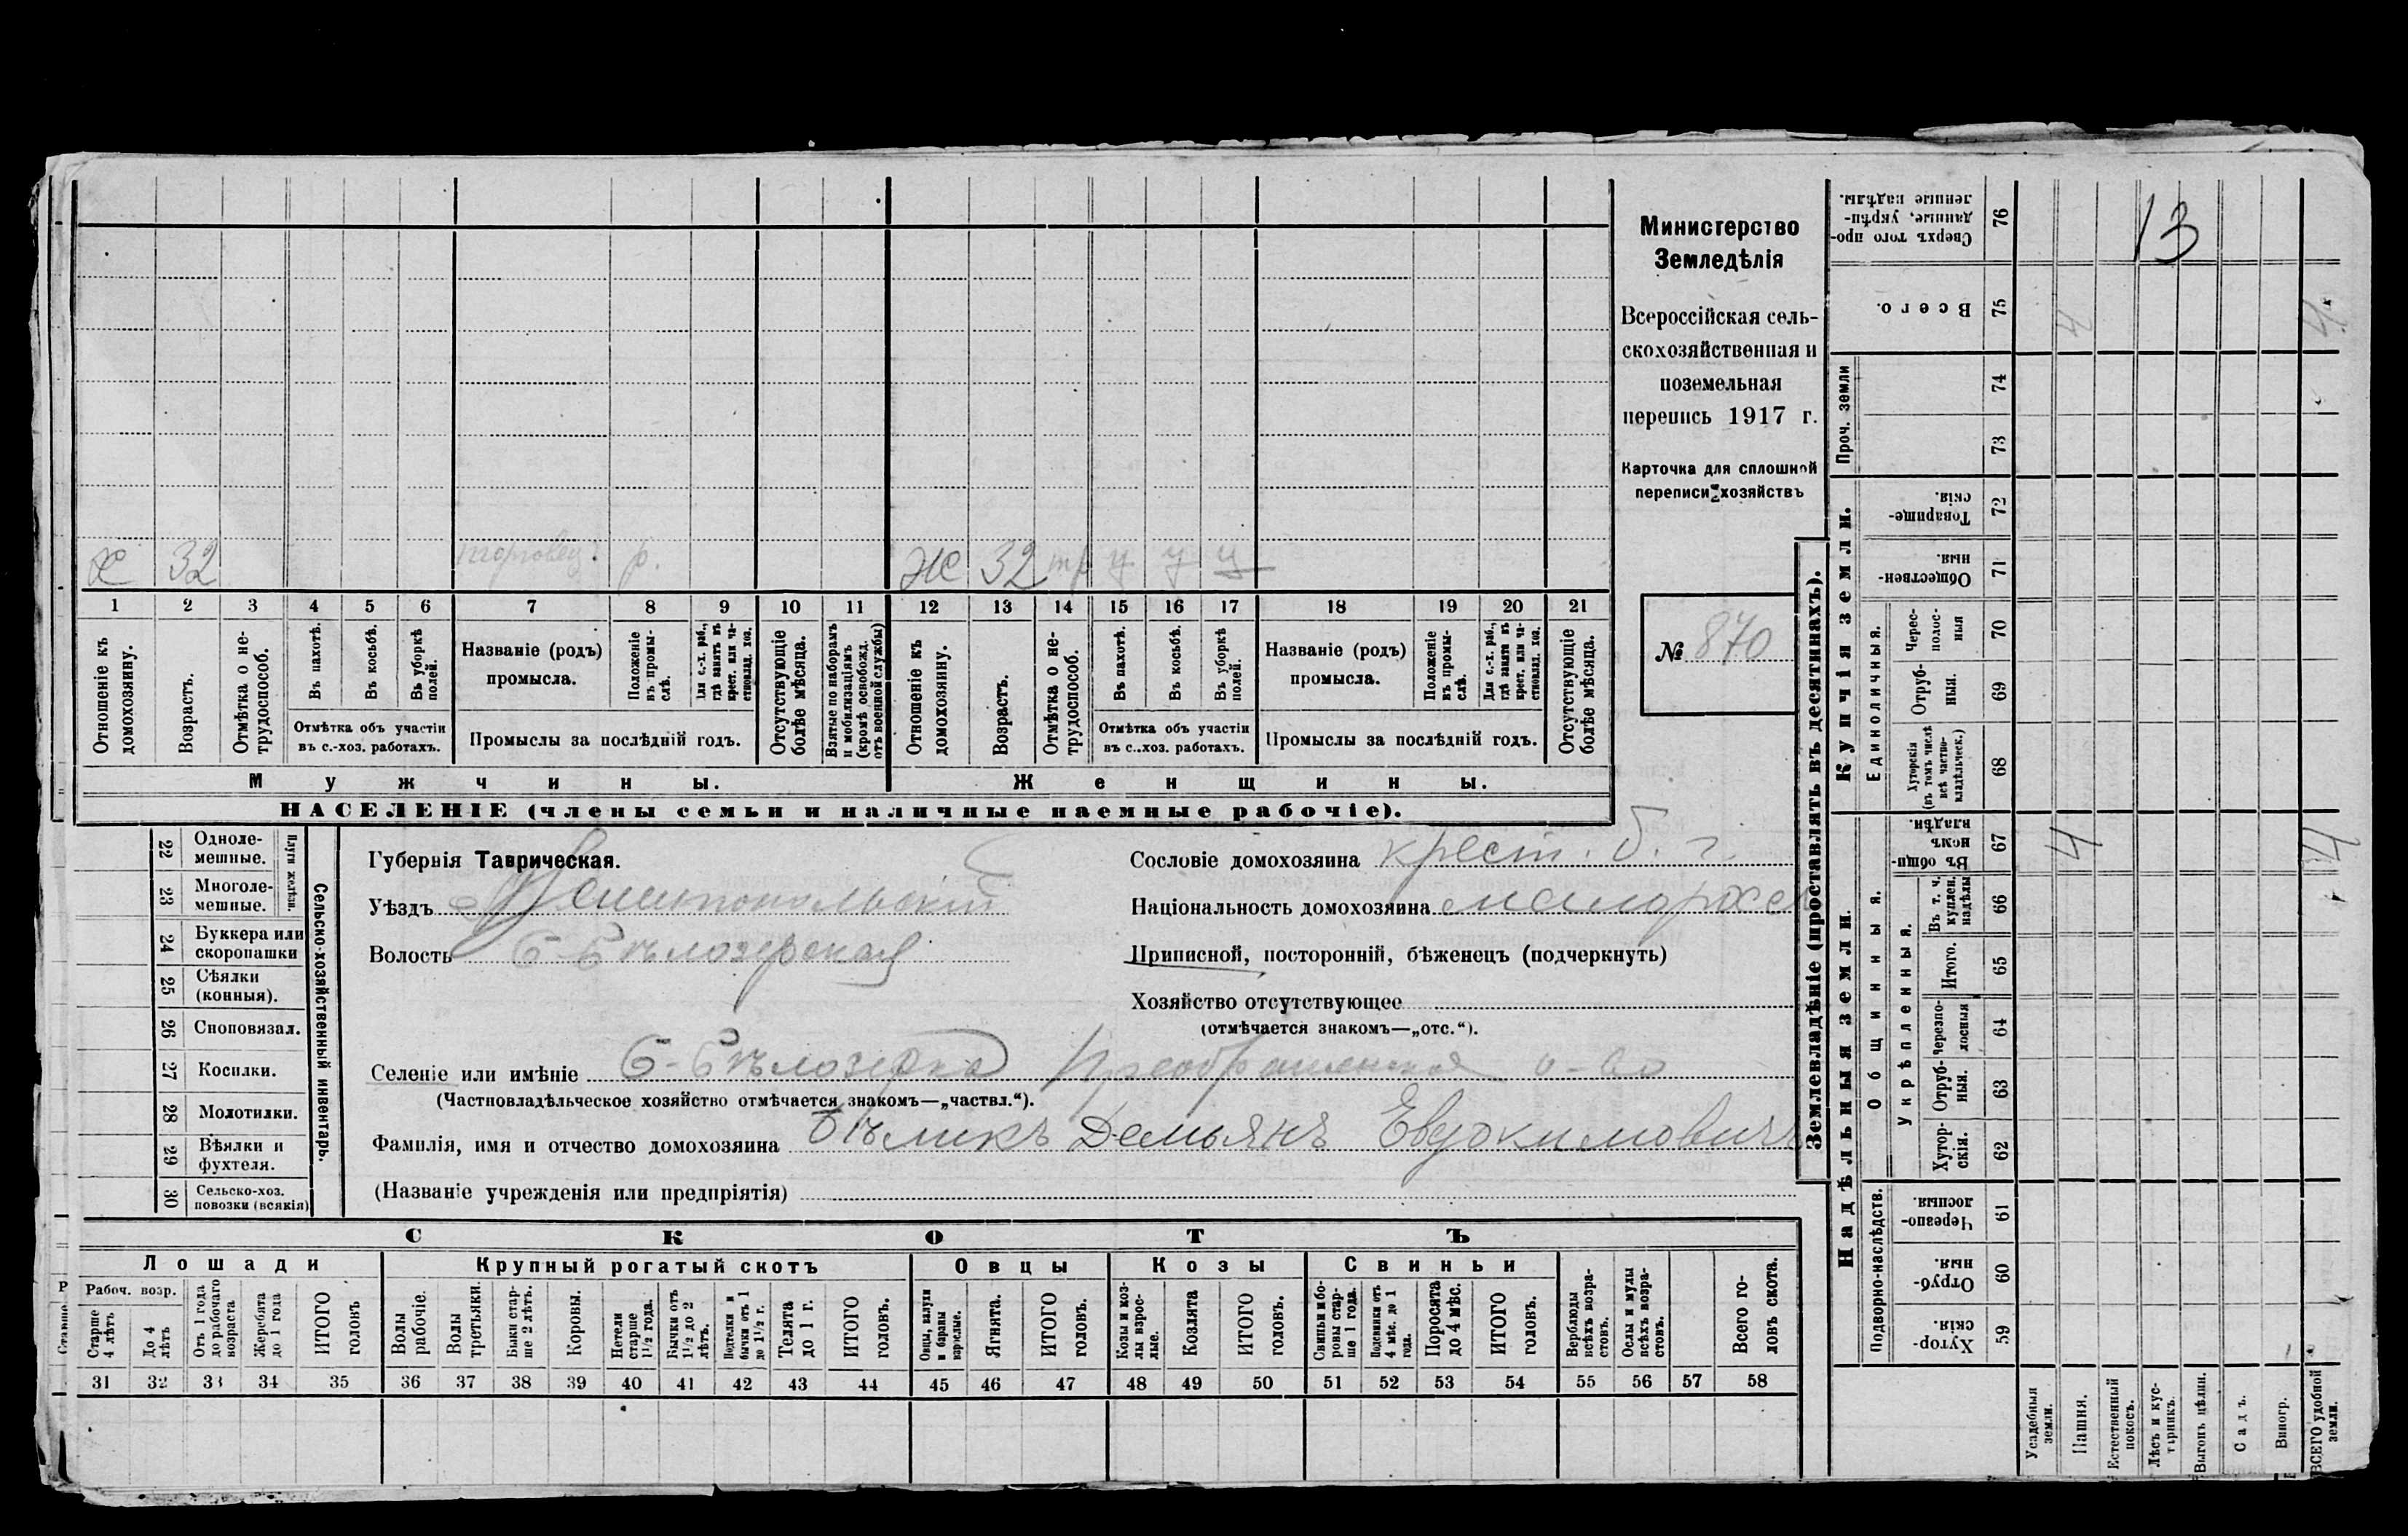 Министерство
Земледѣлія
Всероссійская сель-
скохозяйственная и
поземельная
перепись 1917 г.
Карточка для сплошной
переписи хозяйствъ
№ 870
х 32 торговец. р. ж 32 у у у
1 2 3 4 5 6 7 8 9 10 11 12 13 14 15 16 17 18 19 20 21
Отношеніе къ домохозяину.
Возрастъ.
Отмѣтка о не-трудоспособ.
Въ пахотѣ.
Въ косьбѣ.
Въ уборкѣ полей.
Отмѣтка объ участіи
въ с.-хоз. работахъ.
Названіе (родъ)
промысла.
Положеніе въ промы-слѣ.
Для с.-х. раб., гдѣ занятъ въ крест. или ча-стновлад. хоз.
Промыслы за послѣдній годъ.
Отсутствующіе болѣе мѣсяца.
Взятые по наборамъ и мобилизаціямъ (кромѣ освобожд. отъ военной службы)
Отношеніе къ домохозяину.
Возрастъ.
Отмѣтка о не-трудоспособ.
Въ пахотѣ.
Въ косьбѣ.
Въ уборкѣ полей.
Отмѣтка объ участіи
въ с.-хоз. работахъ.
Названіе (родъ)
промысла.
Положеніе въ промы-слѣ.
Для с.-х. раб., гдѣ занята въ крест. или ча-стновлад. хоз.
Промыслы за послѣдній годъ.
Отсутствующіе болѣе мѣсяца.
Мужчины.
Женщины.
НАСЕЛЕНІЕ (члены семьи и наличные наемные рабочіе).
Сельско-хозяйственный инвентарь.
Плуги желѣзн.
22 Одноле-мешные.
23 Многоле-мешные.
24 Буккера или скоропашки
25 Сѣялки (конныя).
26 Сноповязал.
27 Косилки.
28 Молотилки.
29 Вѣялки и фухтеля.
30 Сельско-хоз. повозки (всякія)
Губернія Таврическая.
Уѣздъ Мелитопольскій
Волость Б-Бѣлозерская
Сословіе домохозяина крест. б. г.
Національность домохозяина малорос
Приписной, посторонній, бѣженецъ (подчеркнуть)
Хозяйство отсутствующее
(отмѣчается знакомъ—„отс.“).
Селеніе или имѣніе Б-Бѣлозерка Преображенское о-во
(Частновладѣльческое хозяйство отмѣчается знакомъ—„частвл.“).
Фамилія, имя и отчество домохозяина Бѣликъ Демьянъ Евдокимовичъ
(Названіе учрежденія или предпріятія)
СКОТЪ
Лошади
Крупный рогатый скотъ
Овцы
Козы
Свиньи
Рабоч. возр.
Старше 4 лѣтъ
До 4 лѣтъ
Отъ 1 года до рабочаго возраста
Жеребята до 1 года
ИТОГО головъ
Волы рабочіе.
Волы третьяки.
Быки стар-ше 2 лѣтъ.
Коровы.
Нетели старше 1½ года.
Бычки отъ 1½ до 2 лѣтъ.
Подтелки и бычки отъ 1 до 1½ г.
Телята до 1 г.
ИТОГО головъ.
Овцы, валухи и бараны взрослые.
Ягнята.
ИТОГО головъ.
Козы и коз-лы взрос-лые.
Козлята
ИТОГО головъ.
Свиньи и бо-ровы стар-ше 1 года.
Подсвинки отъ 4 мѣс. до 1 года.
Поросята до 4 мѣс.
ИТОГО головъ.
Верблюды всѣхъ возра-стовъ.
Ослы и мулы всѣхъ возра-стовъ.
Всего го-ловъ скота.
31 32 33 34 35 36 37 38 39 40 41 42 43 44 45 46 47 48 49 50 51 52 53 54 55 56 57 58
Землевладѣніе (проставлять въ десятинахъ).
Купчія земли.
Надѣльныя земли.
13
Сверхъ того про-данные, укрѣп-ленные надѣлы. 76
Всего. 75 4 4
Проч. земли
74
73
Товарище-скія. 72
Обществен-ныя. 71
Единоличныя.
Черес-полос-ныя 70
Отруб-ныя. 69
Хуторскія (въ томъ числѣ всѣ частно-владѣльческ.) 68
Общинныя.
Въ общин-номъ владѣн. 67 4 4
Укрѣпленныя.
Въ т. ч. куплен. надѣлы 66
Итого. 65
Черезпо-лосныя 64
Отруб-ныя. 63
Хутор-скія. 62
Подворно-наслѣдств.
Черезпо-лосныя 61
Отруб-ныя. 60
Хутор-скія. 59
Усадебныя земли.
Пашня.
Естественный покосъ.
Лѣсъ и кус-тарникъ.
Выгонъ цѣлин.
Садъ.
Виногр.
ВСЕГО удобной земли.